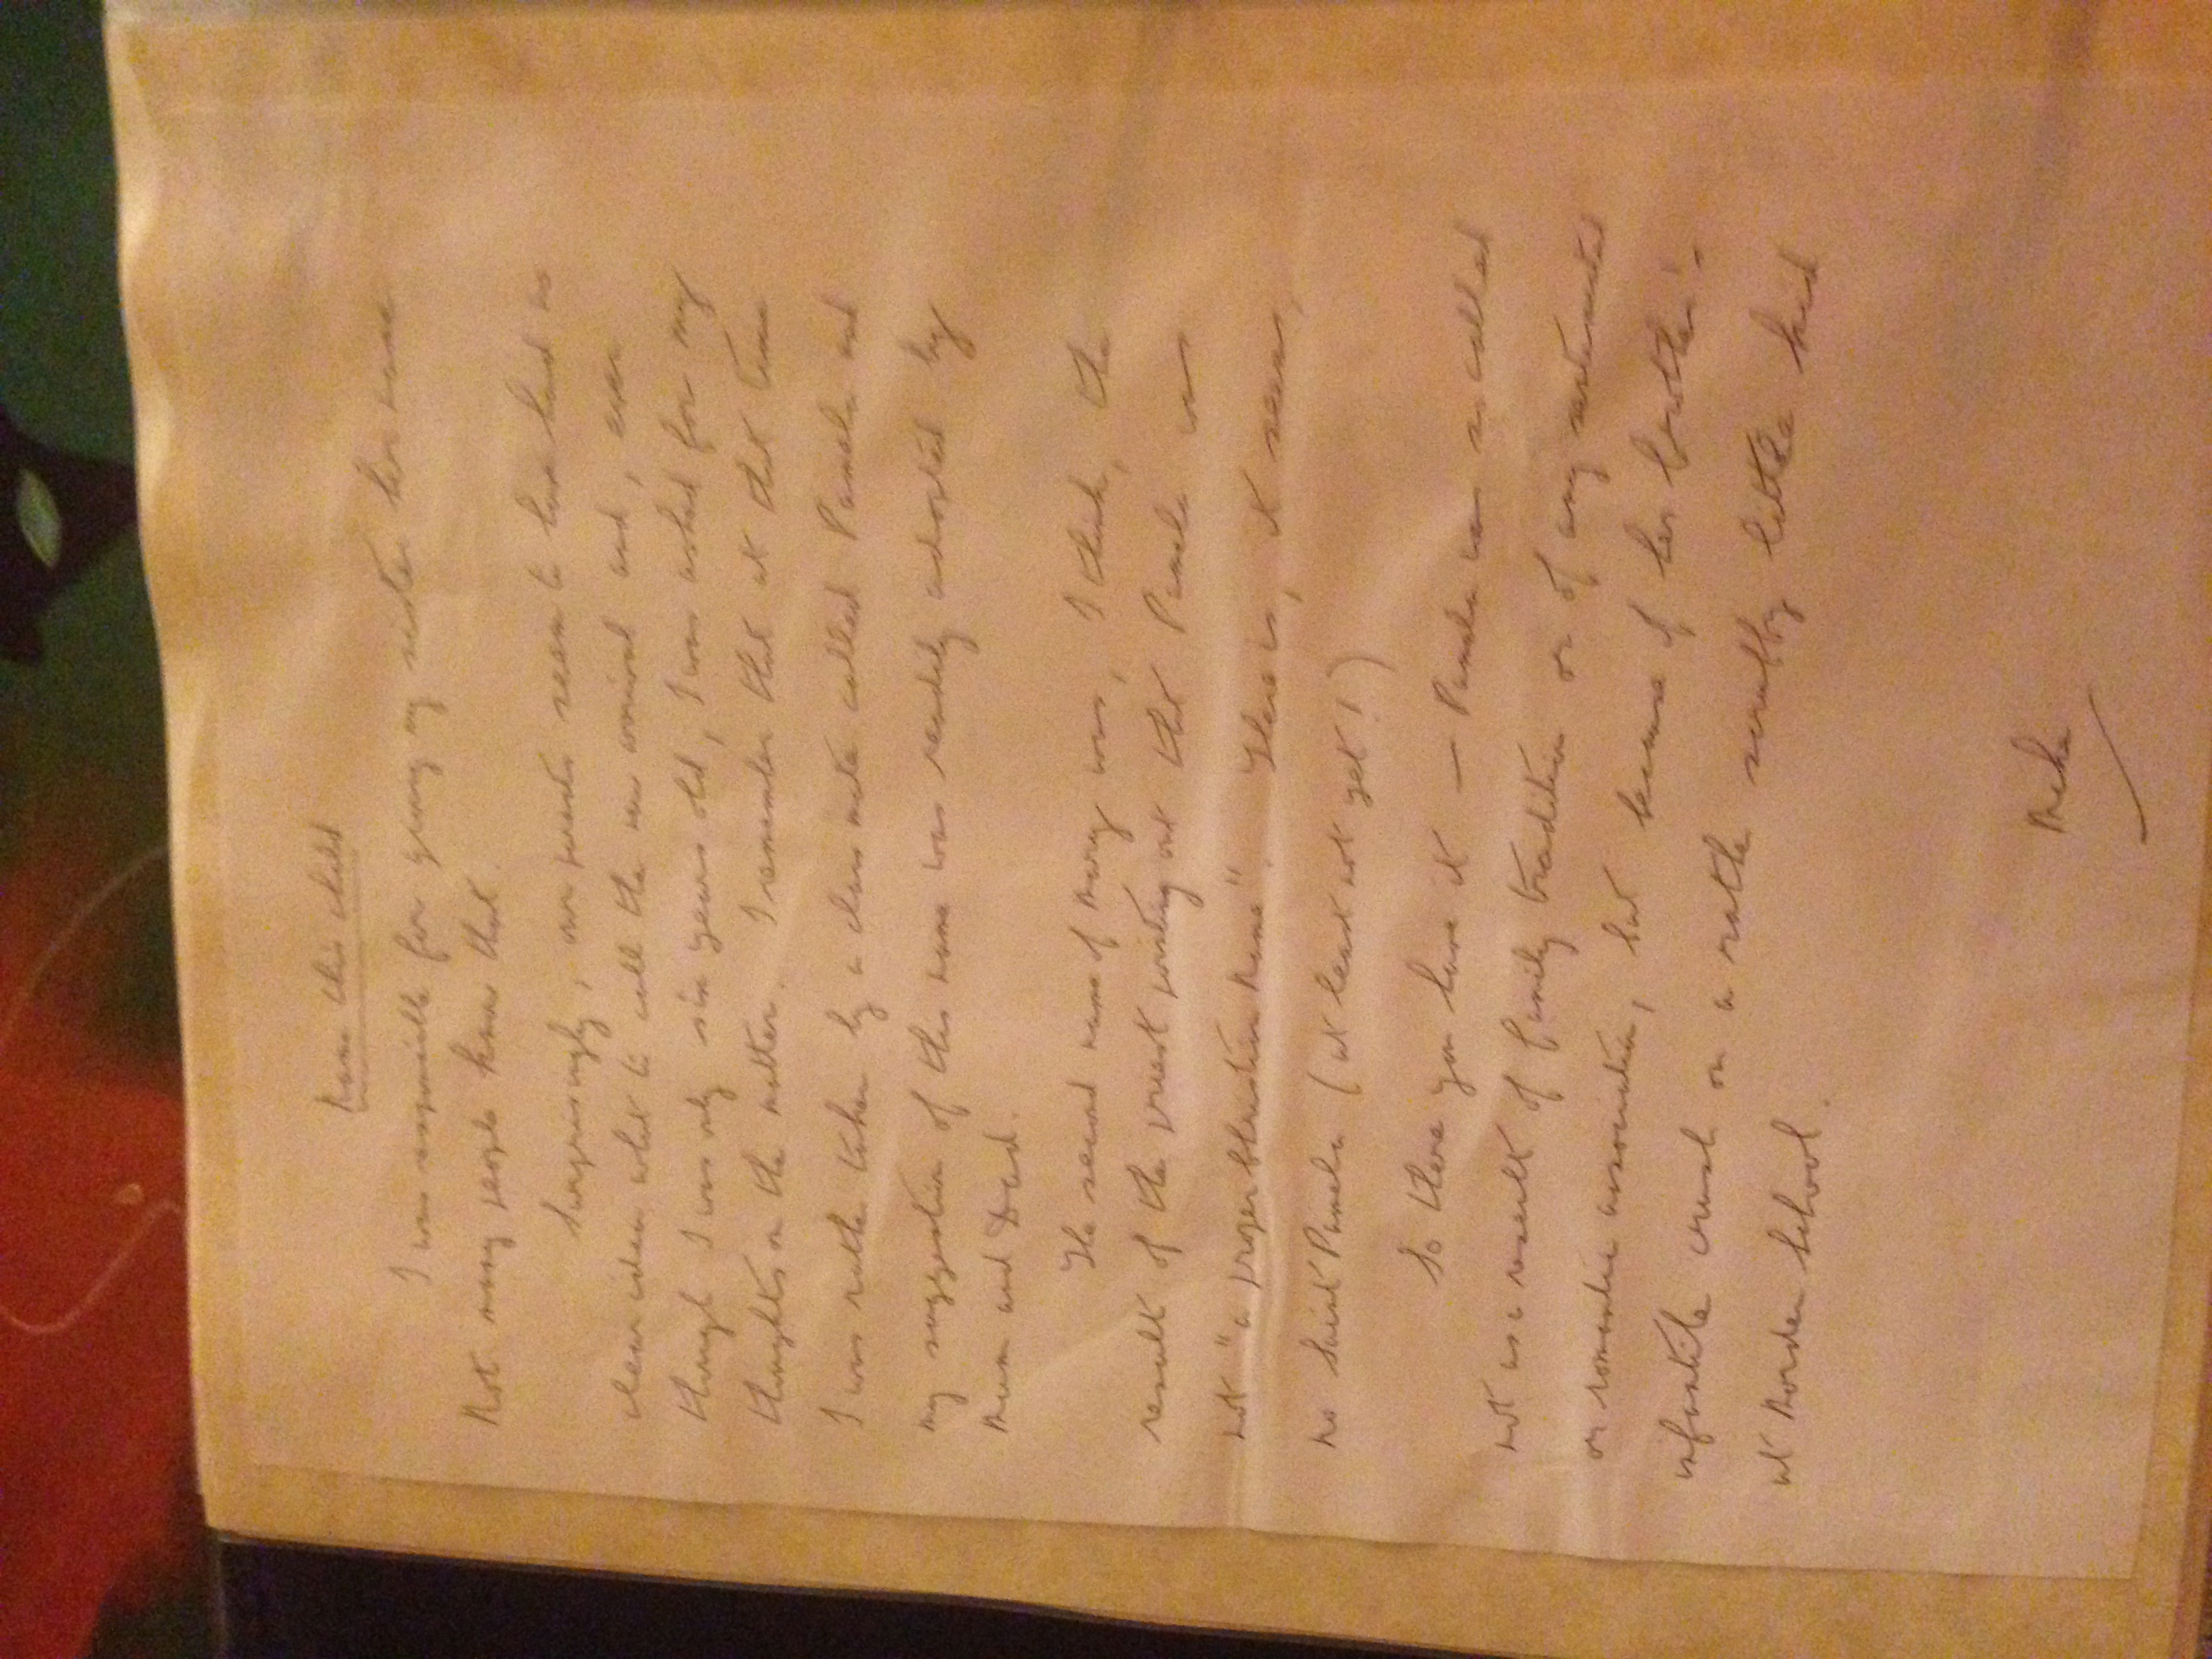 Name this child
I was responsible for giving my sister her name
Not many people know that.
Surprisingly, our parents seem to have had no
clear idea what to call the new arrival and, even
though I was only six years old, I was asked for my
thoughts on the matter. I remember that at that time
I was rather taken by a class mate called Pamela and
my suggestion of this name was readily adopted by
Mum and Dad.
The second name of Mary was, I think, the
result of the priest pointing out that Pamela was
not "a proper Christian Name". There is, it seems,
no Saint Pamela (at least not yet!)
So there you have it – Pamela was so called
not as a result of family tradition or of any sentimental
or romantic association, but because of her brother's
infantile crush on a rather scruffy little kid
at Morden School.
Mike